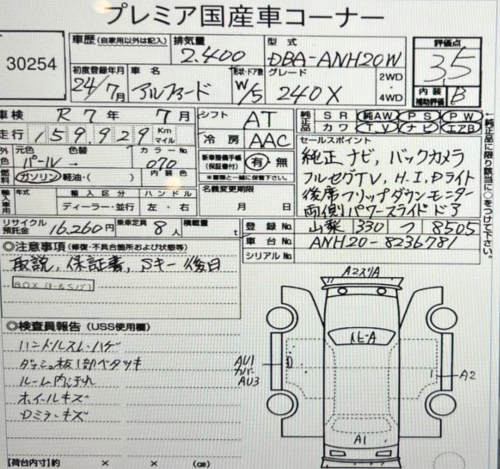 プレミア国産車コーナー
30254
車歴(自家用以外は記入)
排気量
2.400
型式
DBA-ANH20W
評価点
3.5
初度登録年月
24/7月
車名
アルファード
形状・ドア数
W/5
グレード
240X
2WD
4WD
内装
補助評価
B
車検
R7年7月
シフト
AT
純正品
SR
純AW
PS
PW
カワ
TV
ナビ
エアB
走行
159929
Km
マイル
冷房
AAC
セールスポイント
純正ナビ,バックカメラ
フルセグTV,H.I.Dライト
後席フリップダウンモニター
両側パワースライドドア
外色
元色
色替
カラーNo
パール
070
新車整備手帳
(保証書)
有・無
燃料
ガソリン
軽油・( )
内装色
名義変更期限
月 日
輸入車
輸入区分
ハンドル
ディーラー・並行
左・右
リサイクル
預託金
16,260円
乗車定員
8人
積載量
t
登録No
山梨 330 つ 8505
車台No
ANH20-8236781
シリアルNo
◎注意事項(修復・不具合箇所および状態等)
取説,保証書,Sキー後日
◎検査員報告(USS使用欄)
ハンドルスレ・ハゲ
ダッシュ板1部ベタツキ
ルーム内汚れ
ホイールキズ
Dミラーキズ
【荷台内寸】約 × × (cm)
A2スリA
トビーA
AU1
カバー
AU3
A2
A1